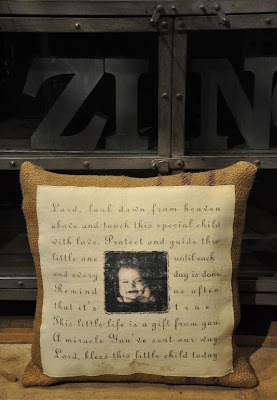 ZIN
Lord, look down from heaven
above and touch this special child
with love. Protect and guide this
little one until each
and every day is done.
Remind us often
that it's true.
This little life is a gift from you
A miracle You've sent our way
Lord, bless this little child today